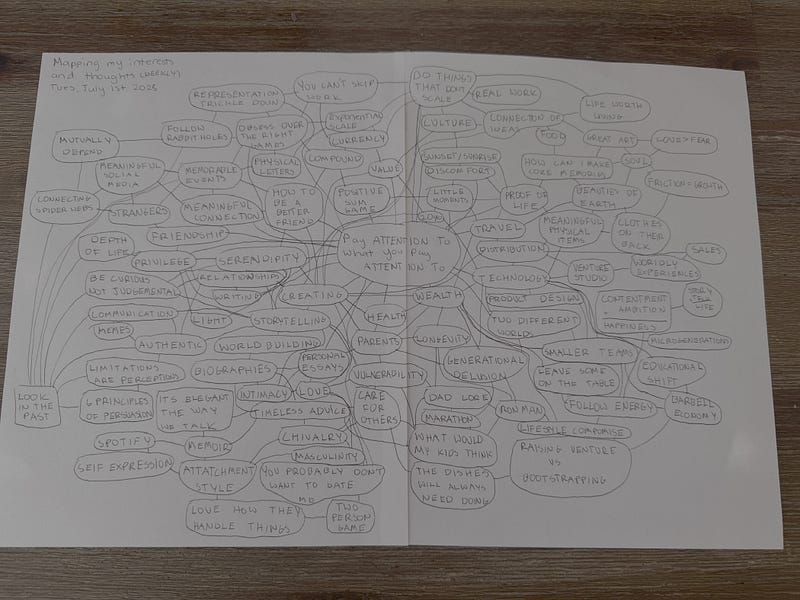 Mapping my interests
and thoughts (WEEKLY)
Tues, July 1st 2025
REPRESENTATION
TRICKLE DOWN
YOU CAN'T SKIP
WORK
DO THINGS
THAT DONT
SCALE
REAL WORK
LIFE WORTH
LIVING
MUTUALLY
DEPEND
FOLLOW
RABBIT HOLES
OBSESS OVER
THE RIGHT
GAMES
EXPONENTIAL
SCALE
CURRENCY
CULTURE
CONNECTION OF
IDEAS
FOOD
GREAT ART
LOVE > FEAR
MEANINGFUL
SOCIAL
MEDIA
MEMORABLE
EVENTS
PHYSICAL
LETTERS
COMPOUND
VALUE
SUNSET/SUNRISE
DISCOMFORT
HOW CAN I MAKE
CORE MEMORIES
SOUL
FRICTION = GROWTH
CONNECTING
SPIDER WEBS
STRANGERS
MEANINGFUL
CONNECTION
HOW TO
BE A
BETTER
FRIEND
POSITIVE
SUM
GAME
LITTLE
MOMENTS
SLOW
PROOF OF
LIFE
BEAUTIES OF
EARTH
FRIENDSHIP
Pay ATTENTION TO
what you PAY
ATTENTION TO
TRAVEL
MEANINGFUL
PHYSICAL
ITEMS
CLOTHES
ON THEIR
BACK
DEPTH
OF LIFE
PRIVILEGE
SERENDIPITY
DISTRIBUTION
SALES
BE CURIOUS
NOT JUDGEMENTAL
RELATIONSHIPS
WRITING
CREATING
WEALTH
TECHNOLOGY
VENTURE
STUDIO
WORLDLY
EXPERIENCES
COMMUNICATION
MEMES
LIGHT
STORYTELLING
HEALTH
PRODUCT DESIGN
TWO DIFFERENT
WORLDS
CONTENTMENT
AMBITION
HAPPINESS
STORY
LIFE
AUTHENTIC
WORLD BUILDING
PARENTS
LONGEVITY
SMALLER TEAMS
MICROGENERATIONS
LIMITATIONS
ARE PERCEPTIONS
BIOGRAPHIES
PERSONAL
ESSAYS
VULNERABILITY
GENERATIONAL
DELUSION
LEAVE SOME
ON THE TABLE
EDUCATIONAL
SHIFT
LOOK
IN THE
PAST
6 PRINCIPLES
OF PERSUASION
ITS ELEGANT
THE WAY
WE TALK
INTIMACY
LOVE
TIMELESS ADVICE
CARE
FOR
OTHERS
DAD LORE
MARATHON
IRONMAN
FOLLOW ENERGY
BARBELL
ECONOMY
SPOTIFY
MEMOIR
CHIVALRY
WHAT WOULD
MY KIDS THINK
LIFESTYLE COMPROMISE
SELF EXPRESSION
ATTATCHMENT
STYLE
MASCULINITY
YOU PROBABLY DONT
WANT TO DATE
ME
THE DISHES
WILL ALWAYS
NEED DOING
RAISING VENTURE
VS
BOOTSTRAPPING
LOVE HOW THEY
HANDLE THINGS
TWO
PERSON
GAME